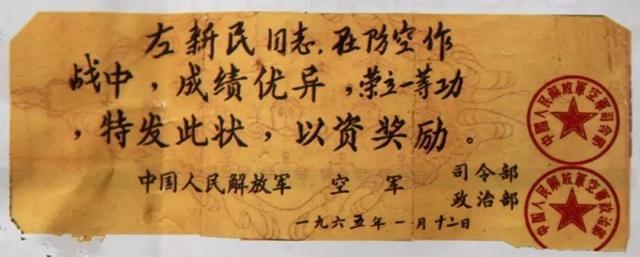 左新民同志，在防空作
战中，成绩优异，荣立一等功
，特发此状，以资奖励。
中国人民解放军 空军 司令部
政治部
一九六五年一月十二日
中国人民解放军空军司令部
中国人民解放军空军政治部